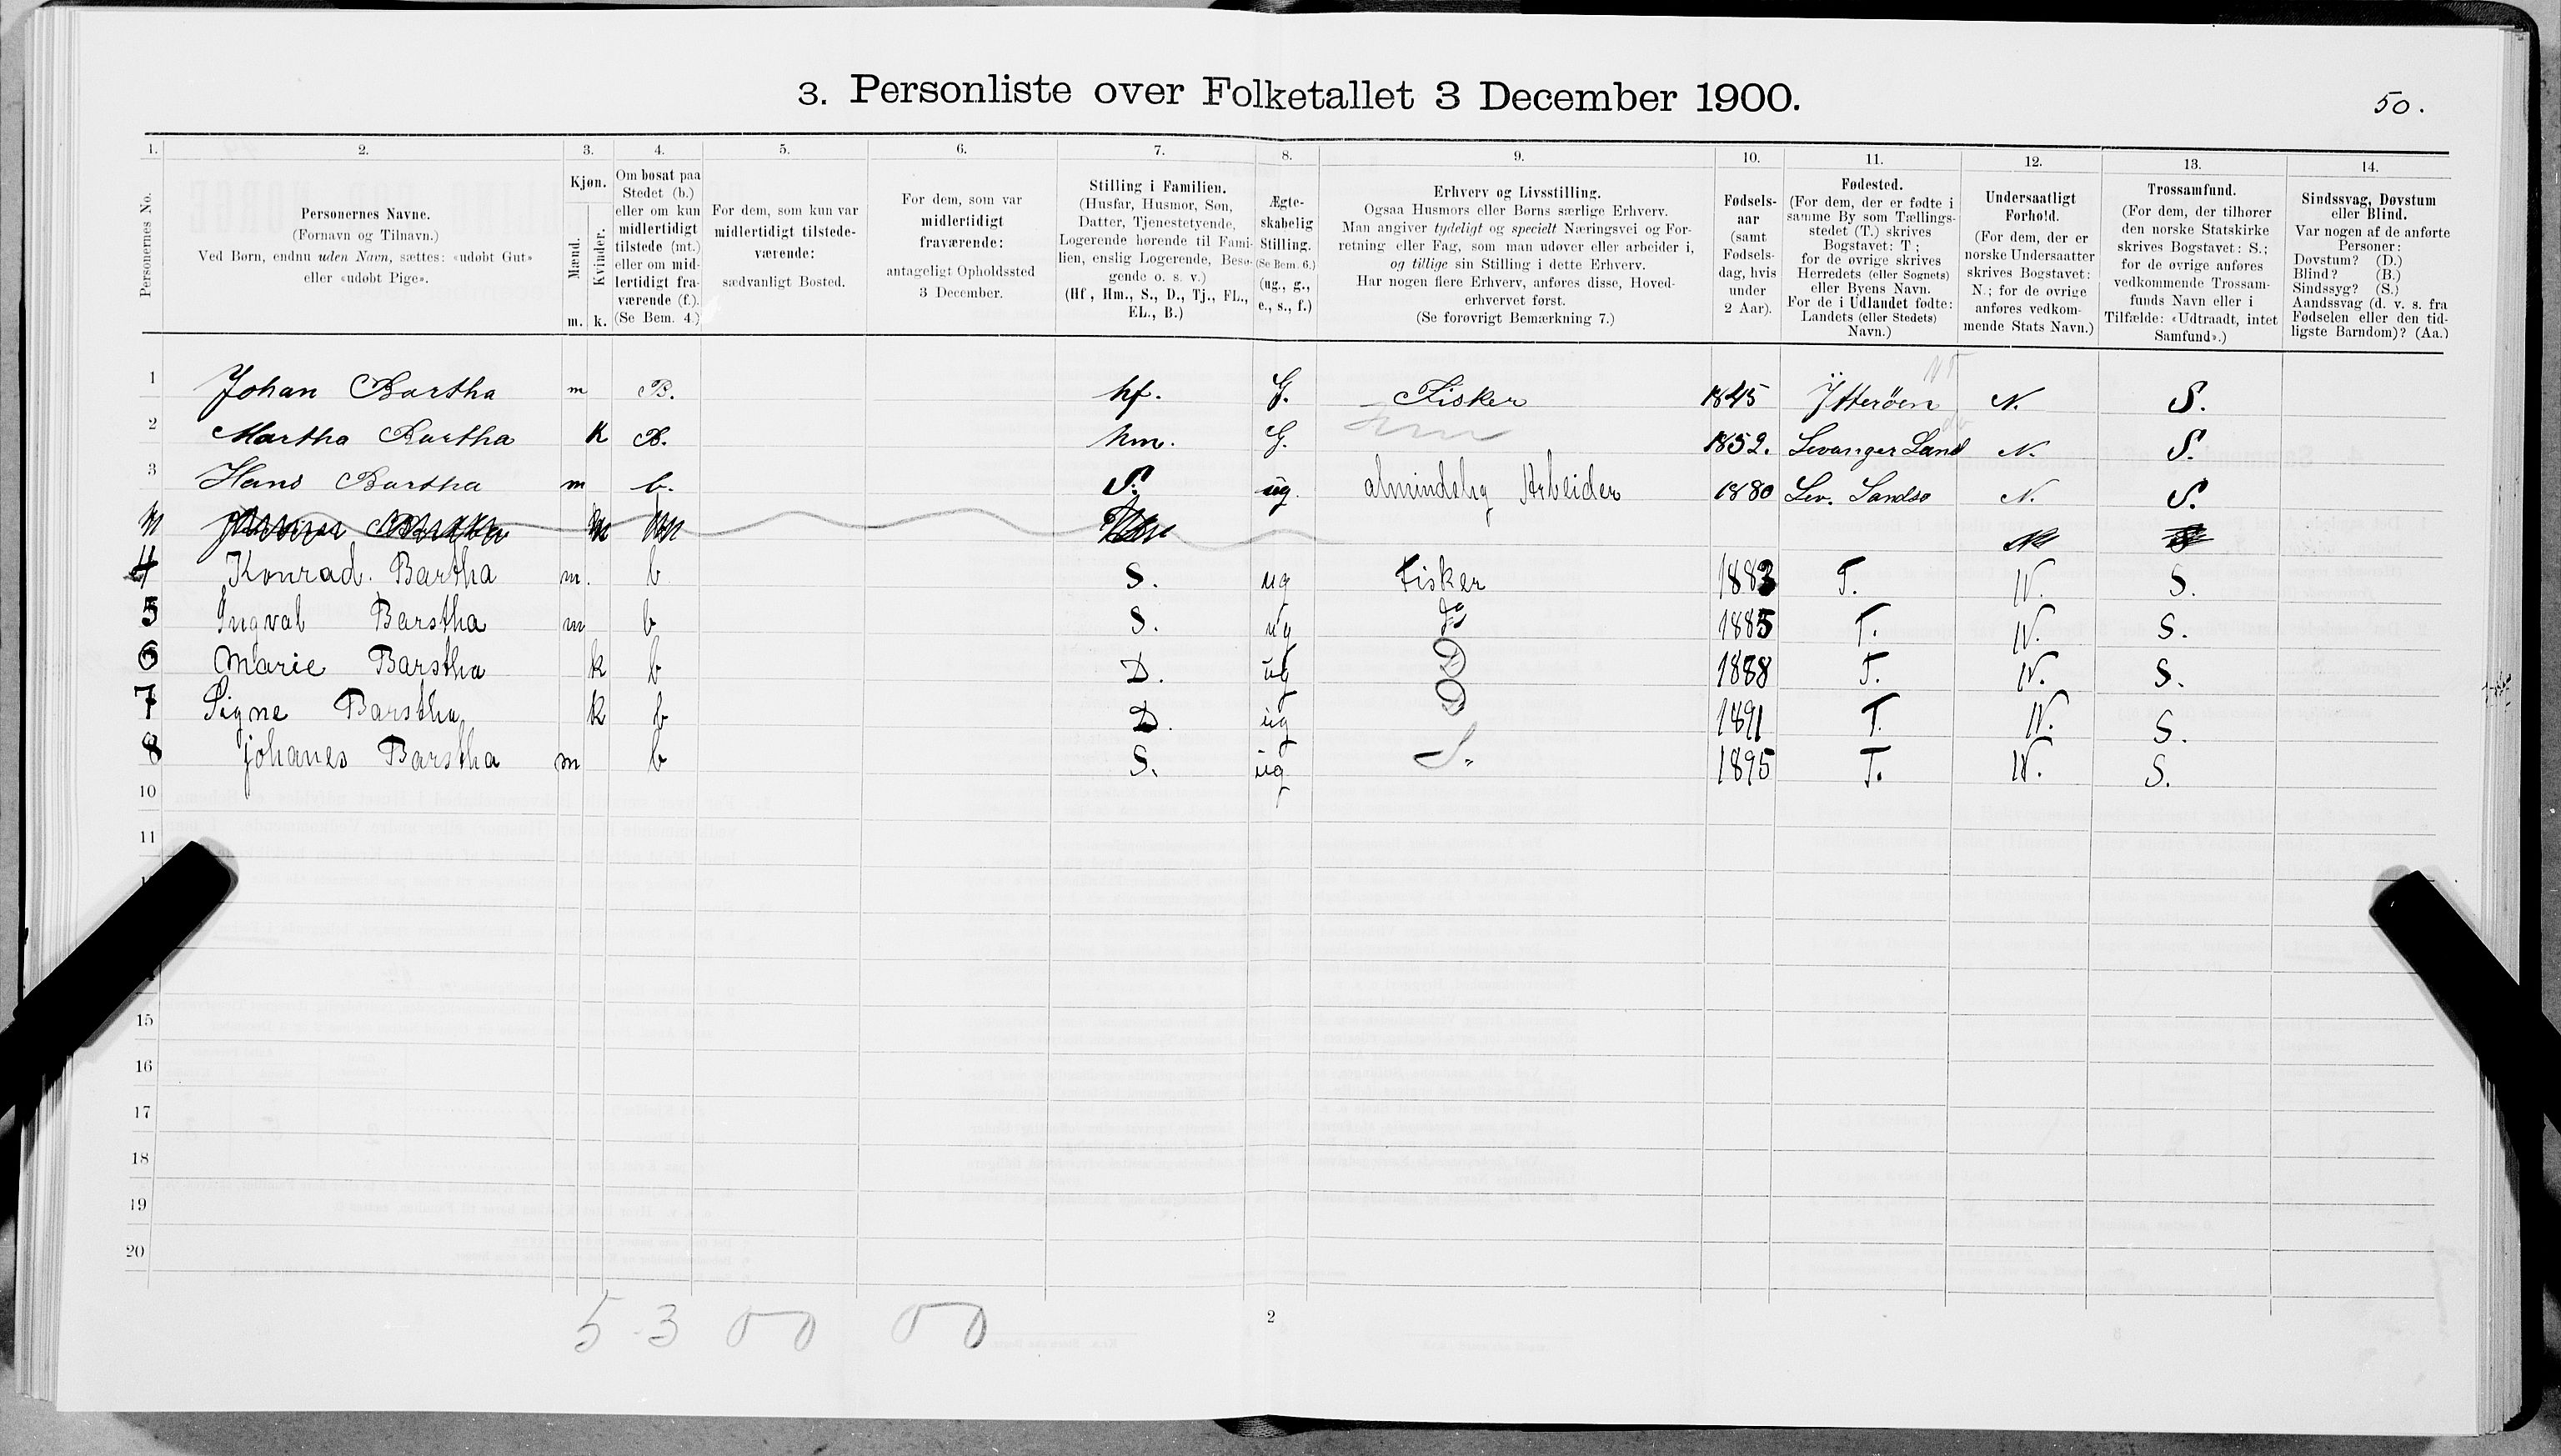 3. Personliste over Folketallet 3 December 1900.
50.
1. 2. 3. 4. 5. 6. 7. 8. 9. 10. 11. 12. 13. 14.
Personernes No.
Personernes Navne.
(Fornavn og Tilnavn.)
Ved Børn, endnu uden Navn, sættes: «udøbt Gut»
eller «udøbt Pige».
Kjøn.
Mænd.
Kvinder.
m. k.
Om bosat paa
Stedet (b.)
eller om kun
midlertidigt
tilstede (mt.)
eller om mid-
lertidigt fra-
værende (f.).
(Se Bem. 4.)
For dem, som kun var
midlertidigt tilstede-
værende:
sædvanligt Bosted.
For dem, som var
midlertidigt
fraværende:
antageligt Opholdssted
3 December.
Stilling i Familien.
(Husfar, Husmor, Søn,
Datter, Tjenestetyende,
Logerende hørende til Fami-
lien, enslig Logerende, Besø-
gende o. s. v.)
(Hf., Hm., S., D., Tj., FL.,
EL., B.)
Ægte-
skabelig
Stilling.
(Se Bem. 6.)
(ug., g.,
e., s., f.)
Erhverv og Livsstilling.
Ogsaa Husmors eller Børns særlige Erhverv.
Man angiver tydeligt og specielt Næringsvei og For-
retning eller Fag, som man udøver eller arbeider i,
og tillige sin Stilling i dette Erhverv.
Har nogen flere Erhverv, anføres disse, Hoved-
erhvervet først.
(Se forøvrigt Bemærkning 7.)
Fødsels-
aar
(samt
Fødsels-
dag, hvis
under
2 Aar).
Fødested.
(For dem, der er fødte i
samme By som Tællings-
stedet (T.) skrives
Bogstavet: T;
for de øvrige skrives
Herredets (eller Sognets)
eller Byens Navn.
For de i Udlandet fødte:
Landets (eller Stedets)
Navn.)
Undersaatligt
Forhold.
(For dem, der er
norske Undersaatter
skrives Bogstavet:
N.; for de øvrige
anføres vedkom-
mende Stats Navn.)
Trossamfund.
(For dem, der tilhører
den norske Statskirke
skrives Bogstavet: S.;
for de øvrige anføres
vedkommende Trossam-
funds Navn eller i
Tilfælde: «Udtraadt, intet
Samfund».)
Sindssvag, Døvstum
eller Blind.
Var nogen af de anførte
Personer:
Døvstum? (D.)
Blind? (B.)
Sindssyg? (S.)
Aandssvag (d. v. s. fra
Fødselen eller den tid-
ligste Barndom)? (Aa.)
1 Johan Bartha m B. hf. G. Fisker 1845 Ytterøen N. S.
2 Martha Bartha K B. hm. G. 1852. Levanger Land N. S.
3 Hans Bartha m b. S. ug. almindelig Arbeider 1880 Lev. Landso N. S.
4 Konrad. Bartha m. b S. ug Fisker 1883 T. N. S.
5 Ingval Barstha m b S. ug do 1885 T. N. S.
6 Marie Barstha k b D. ug D 1888 T. N. S.
7 Signe Barstha k b D. ug D 1891 T. N. S.
8 johanes Barstha m b S. ug S. 1895 T. N. S.
10
11
15
16
17
18
19
20
5 3 00 00
2